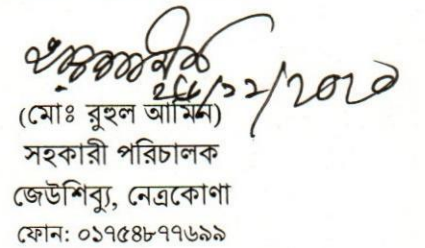 (মোঃ রুহুল আমিন)
সহকারী পরিচালক
জেউশিব্যু, নেত্রকোণা
ফোন: ০১৭৫৪৮৭৭৬৯৯